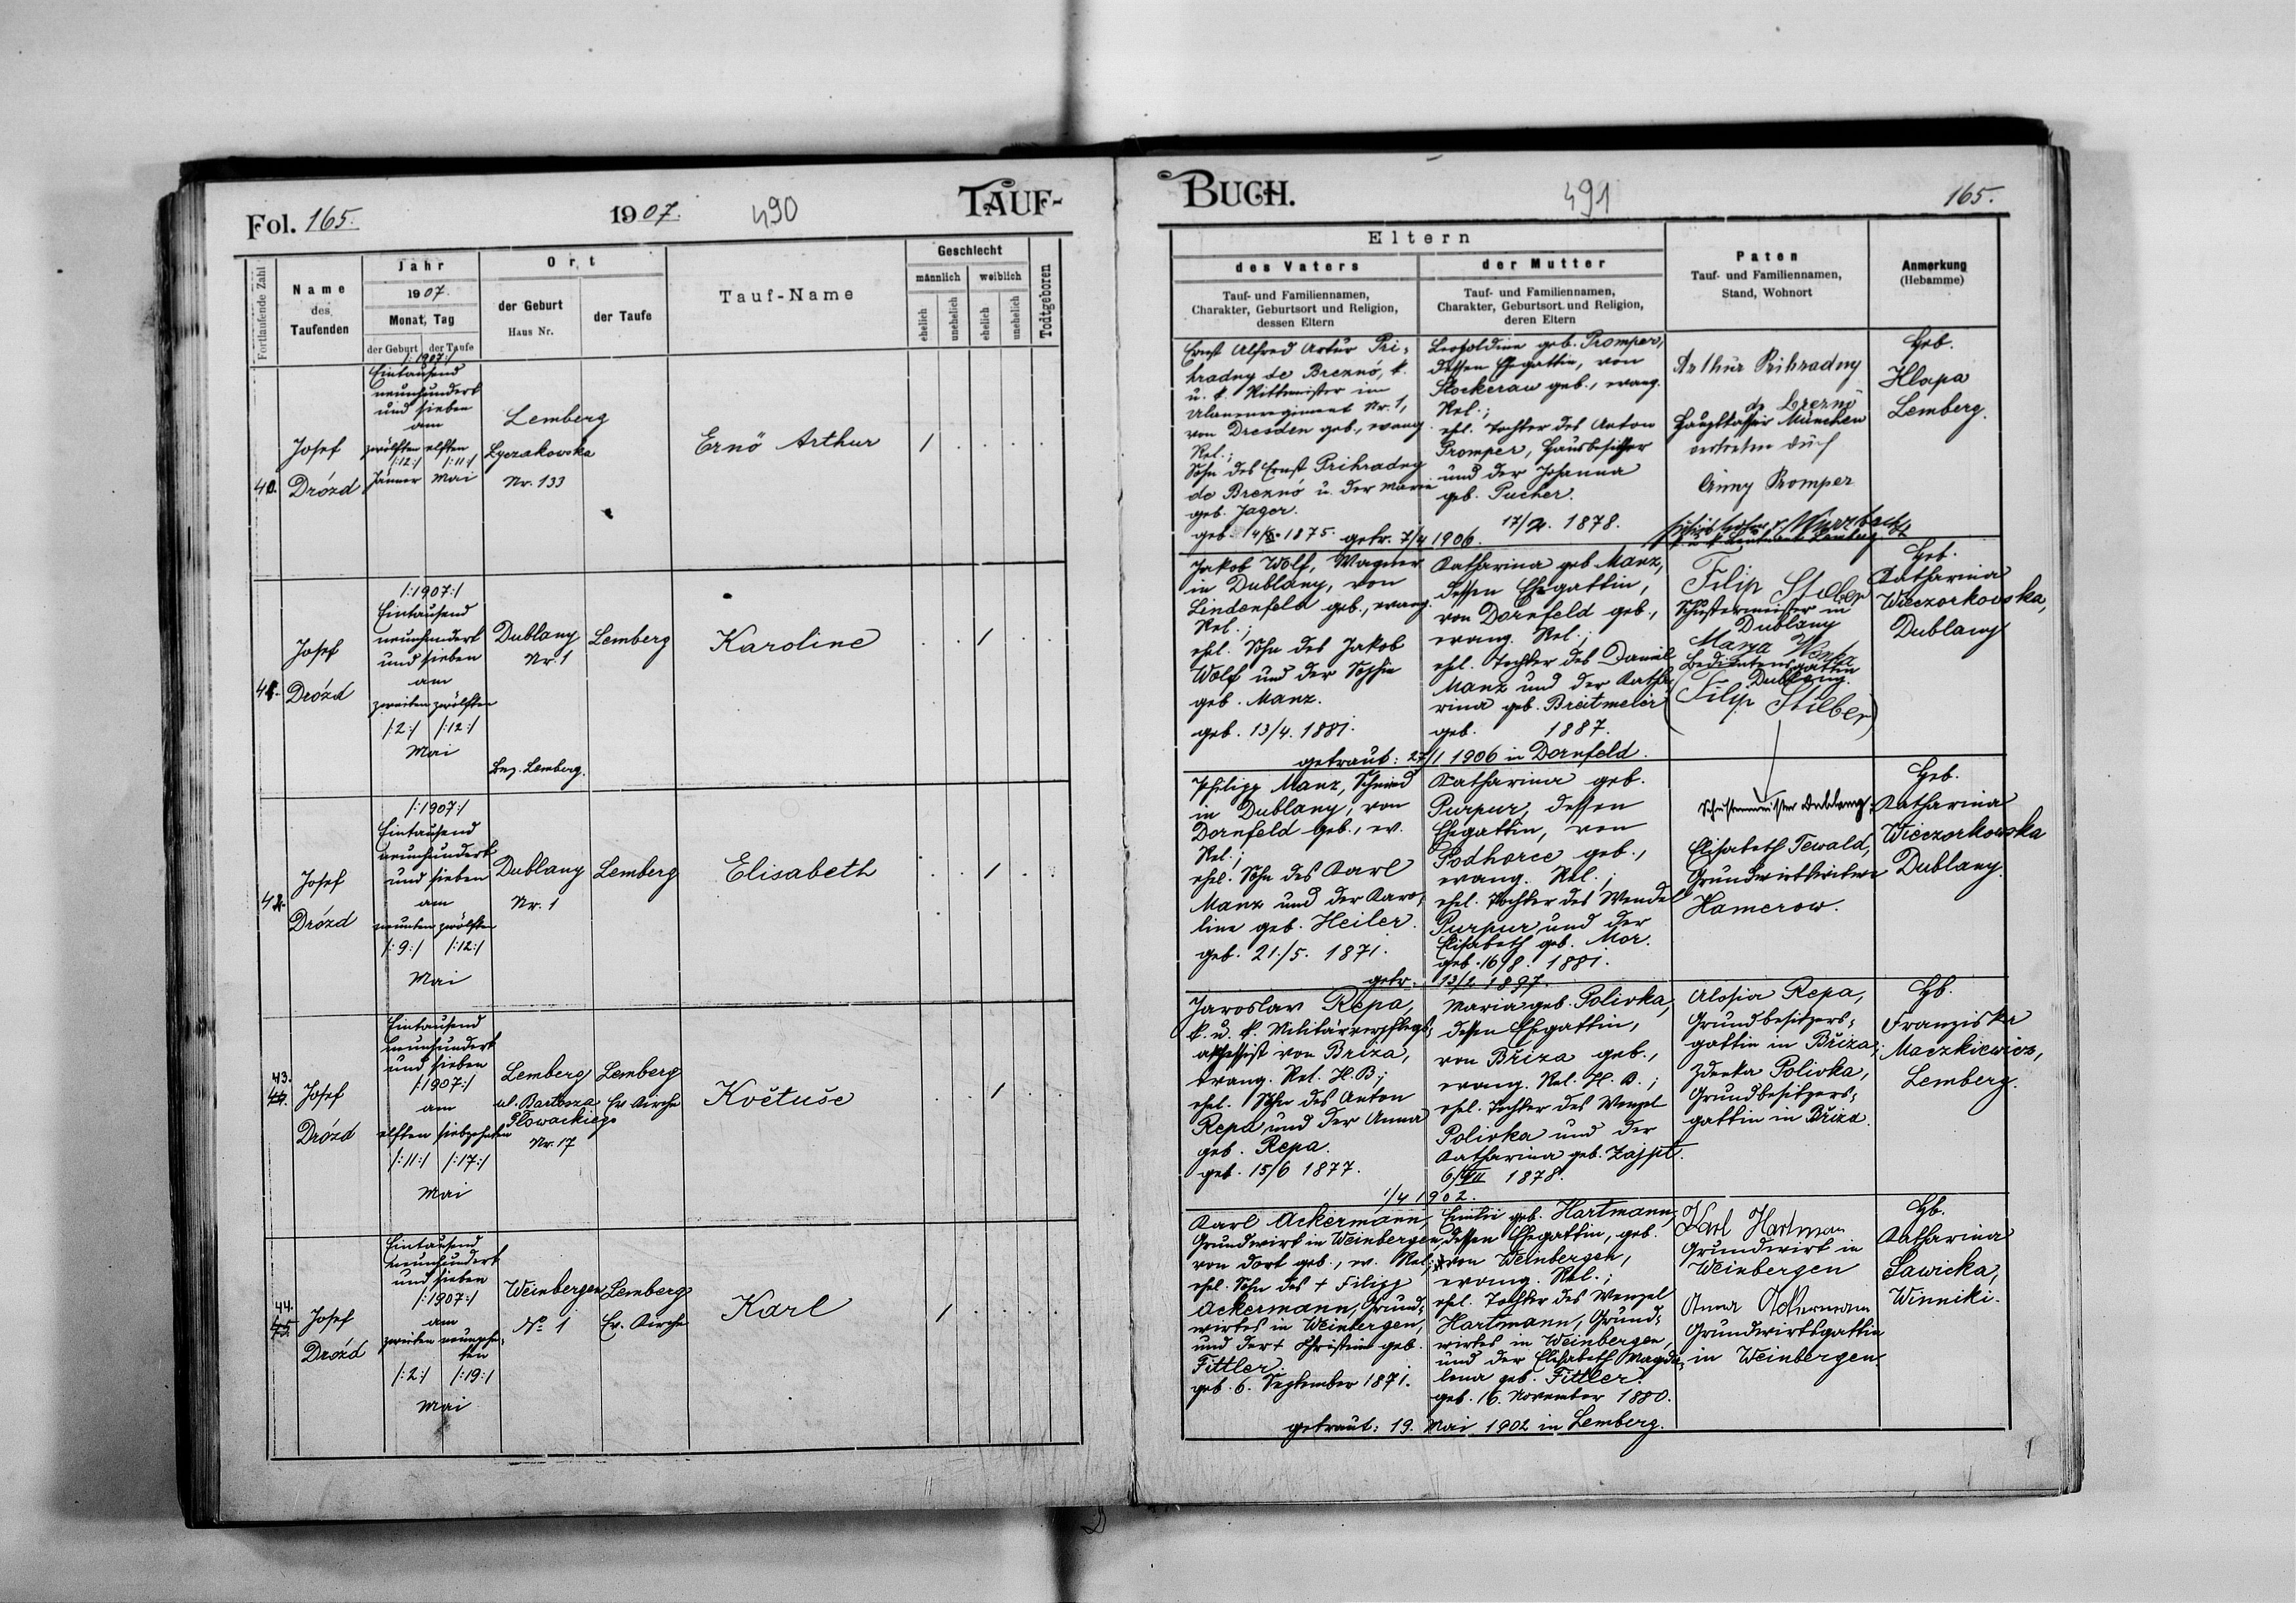 Fol. 165.
1907.
490
TAUF-
Fortlaufende Zahl
Name
des
Taufenden
Jahr
1907.
Monat, Tag
der Geburt
der Taufe
Ort
der Geburt
Haus Nr.
der Taufe
Tauf-Name
Geschlecht
männlich
weiblich
ehelich
unehelich
ehelich
unehelich
Todtgeboren
40.
Josef
Drózd
/:1907:/
Eintausend
neunhundert
und sieben
am
zwölften elften
/:12:/ /:11:/
Jänner Mai
Lemberg
Lyczakowska
Nr. 133
Ernö Arthur
41.
Josef
Drózd
/:1907:/
Eintausend
neunhundert
und sieben
am
zweiten zwölften
/:2:/ /:12:/
Mai
Dublany
Nr. 1
Bez. Lemberg.
Lemberg
Karoline
42.
Josef
Drózd
/:1907:/
Eintausend
neunhundert
und sieben
am
neunten zwölften
/:9:/ /:12:/
Mai
Dublany
Nr. 1
Lemberg
Elisabeth
43.
44.
Josef
Drózd
Eintausend
neunhundert
und sieben
/:1907:/
am
elften siebzehnten
/:11:/ /:17:/
Mai
Lemberg
ul. Bartosza
Głowackiego
Nr. 17
Lemberg
Ev. Kirche
Květuše
44.
45.
Josef
Drózd
Eintausend
neunhundert
und sieben
/:1907:/
am
zweiten neunzehn-
ten
/:2:/ /:19:/
Mai
Weinbergen
No 1
Lemberg
Ev. Kirche
Karl
BUCH.
491
165.
Eltern
des Vaters
Tauf- und Familiennamen,
Charakter, Geburtsort und Religion,
dessen Eltern
der Mutter
Tauf- und Familiennamen,
Charakter, Geburtsort und Religion,
deren Eltern
Paten
Tauf- und Familiennamen,
Stand, Wohnort
Anmerkung
(Hebamme)
Ernst Alfred Artur Pri-
hradny de Breznó, k.
u. k. Rittmeister im
Ulanenregiment Nr. 1,
von Dresden geb., evang.
Rel.;
Sohn des Ernst Prihradny
de Breznó u. der Marie
geb. Jager.
geb. 1875. getr. 7/4 1906.
Leopoldine geb. Promper,
dessen Ehegattin, von
Stockerau geb., evang.
Rel.;
ehl. Tochter des Anton
Promper, Hausbesitzer
und der Johanna
geb. Pucher.
1878.
Arthur Prihradny
de Brezno
München
vertreten durch
Anny Promper
Heb.
Hlapa
Lemberg.
Jakob Wolf, Wagner
in Dublany, von
Lindenfeld geb., evang.
Rel.;
ehel. Sohn des Jakob
Wolf und der Sophie
geb. Manz.
geb. 13/4. 1881.
Katharina geb. Manz,
dessen Ehegattin,
von Dornfeld geb.,
evang. Rel.;
ehel. Tochter des Daniel
Manz und der Katha-
rina geb. Breitmeier
geb. 1887.
getraut: 27/1 1906 in Dornfeld.
Filip Stilber
Schustermeister in
Dublany
Bedientensgattin
Dublany.
(Filip Stilber)
Heb.
Katharina
Wieczorkowska,
Dublany
Philipp Manz, Schmied
in Dublany, von
Dornfeld geb., ev.
Rel.;
ehel. Sohn des Karl
Manz und der Karo-
line geb. Heiler.
geb. 21./5. 1871.
Katharina geb.
Purpur, dessen
Ehegattin, von
Podhorce geb.,
evang. Rel.;
ehel. Tochter des Wendel
Purpur und der
Elisabeth geb. Mor.
geb. 16/8. 1881.
getr. 13/2 1897.
Schustermeister Dublany.
Elisabeth Tewald,
Grundwirtswitwe
Hamerow.
Heb.
Katharina
Wieczorkowska
Dublany.
Jaroslav Řepa,
k. u. k. Militärverpflegs-
akzessist von Bříza,
evang. Rel. H. B.;
ehel. Sohn des Anton
Řepa und der Anna
geb. Řepa.
geb. 15/6 1877.
Maria geb. Polivka,
dessen Ehegattin,
von Bříza geb.,
evang. Rel. H. B.;
ehel. Tochter des Wenzel
Polivka und der
Katharina geb. Zajpt.
6/VII 1878.
1/4 1902.
Aloisia Řepa,
Grundbesitzers-
gattin in Bříza;
Zdenka Polivka,
Grundbesitzers-
gattin in Bříza.
Hb.
Franziska
Maczkiewicz,
Lemberg.
Karl Ackermann,
Grundwirt in Weinbergen,
von dort geb., ev. Rel.;
ehel. Sohn des † Filipp
Ackermann, Grund-
wirtes in Weinbergen,
und der † Christine geb.
Fittler.
geb. 6. September 1871.
Emilie geb. Hartmann,
dessen Ehegattin, geb.
von Weinbergen,
evang. Rel.;
ehel. Tochter des Wenzel
Hartmann, Grund-
wirtes in Weinbergen,
und der Elisabeth Magda-
lena geb. Fittler.
geb. 16. November 1880.
getraut: 19. Mai 1902 in Lemberg.
Karl Hartman
Grundwirt in
Weinbergen
Anna Ackermann
Grundwirtsgattin
in Weinbergen.
Hb.
Katharina
Sawicka,
Winniki.